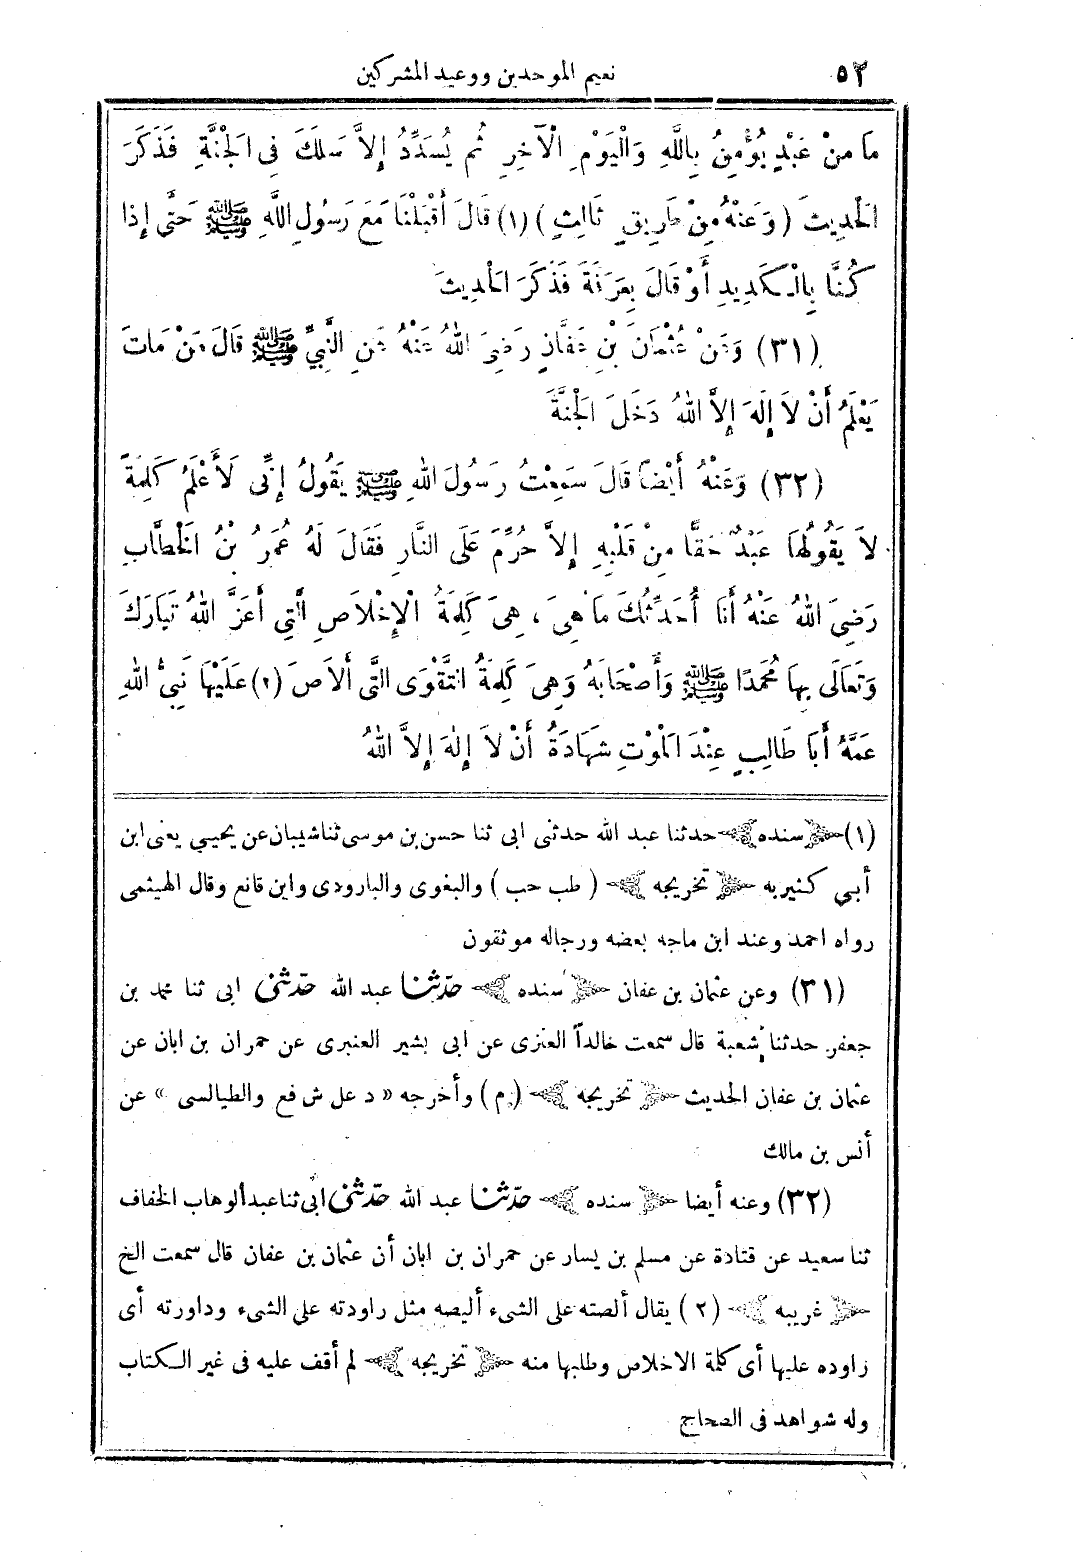 ٥٢ نعيم الموحدين ووعيد المشركين
مَا مِنْ عَبْدٍ يُؤْمِنُ بِاللَّهِ وَالْيَوْمِ الْآخِرِ ثُمَّ يُسَدِّدُ إِلاَّ سَلَكَ فِي الْجَنَّةِ فَذَكَرَ
الْحَدِيثَ (وَعَنْهُ مِنْ طَرِيقٍ ثَالِثٍ) (١) قَالَ أَقْبَلْنَا مَعَ رَسُولِ اللَّهِ ﷺ حَتَّى إِذَا
كُنَّا بِالْكَدِيدِ أَوْ قَالَ بِعَرَفَةَ فَذَكَرَ الْحَدِيثَ
(٣١) وَعَنْ عُثْمَانَ بْنِ عَفَّانٍ رَضِيَ اللهُ عَنْهُ عَنِ النَّبِيِّ ﷺ قَالَ مَنْ مَاتَ
يَعْلَمُ أَنْ لاَ إِلَهَ إِلاَّ اللهُ دَخَلَ الْجَنَّةَ
(٣٢) وَعَنْهُ أَيْضًا قَالَ سَمِعْتُ رَسُولَ اللهِ ﷺ يَقُولُ إِنِّي لَأَعْلَمُ كَلِمَةً
لاَ يَقُولُهَا عَبْدٌ حَقًّا مِنْ قَلْبِهِ إِلاَّ حُرِّمَ عَلَى النَّارِ فَقَالَ لَهُ عُمَرُ بْنُ الْخَطَّابِ
رَضِيَ اللهُ عَنْهُ أَنَا أُحَدِّثُكَ مَا هِيَ ، هِيَ كَلِمَةُ الْإِخْلَاصِ الَّتِي أَعَزَّ اللهُ تَبَارَكَ
وَتَعَالَى بِهَا مُحَمَّدًا ﷺ وَأَصْحَابَهُ وَهِيَ كَلِمَةُ التَّقْوَى الَّتِي أَلاَصَ (٢) عَلَيْهَا نَبِيُّ اللهِ
عَمَّهُ أَبَا طَالِبٍ عِنْدَ الْمَوْتِ شَهَادَةُ أَنْ لاَ إِلَهَ إِلاَّ اللهُ
(١) سنده حدثنا عبد الله حدثنى ابى ثنا حسن بن موسى ثنا شيبان عن يحيى يعنى ابن
أبي كثير به تخريجه ( طب حب ) والبغوى والبارودى وابن قانع وقال الهيثمى
رواه احمد وعند ابن ماجه بعضه ورجاله موثقون
(٣١) وعن عثمان بن عفان سنده حدّثنا عبد الله حدّثنى ابى ثنا محمد بن
جعفر حدثنا شعبة قال سمعت خالداً العنزى عن ابى بشير العنبرى عن حمران بن ابان عن
عثمان بن عفان الحديث تخريجه (م) وأخرجه « د عل ش فع والطيالسى » عن
أنس بن مالك
(٣٢) وعنه أيضا سنده حدّثنا عبد الله حدّثنى ابى ثنا عبد الوهاب الخفاف
ثنا سعيد عن قتادة عن مسلم بن يسار عن حمران بن ابان أن عثمان بن عفان قال سمعت الخ
غريبه (٢) يقال ألصته على الشىء أليصه مثل راودته على الشىء وداورته أى
راوده عليها أى كلمة الاخلاص وطلبها منه تخريجه لم أقف عليه فى غير الكتاب
وله شواهد فى الصحاح